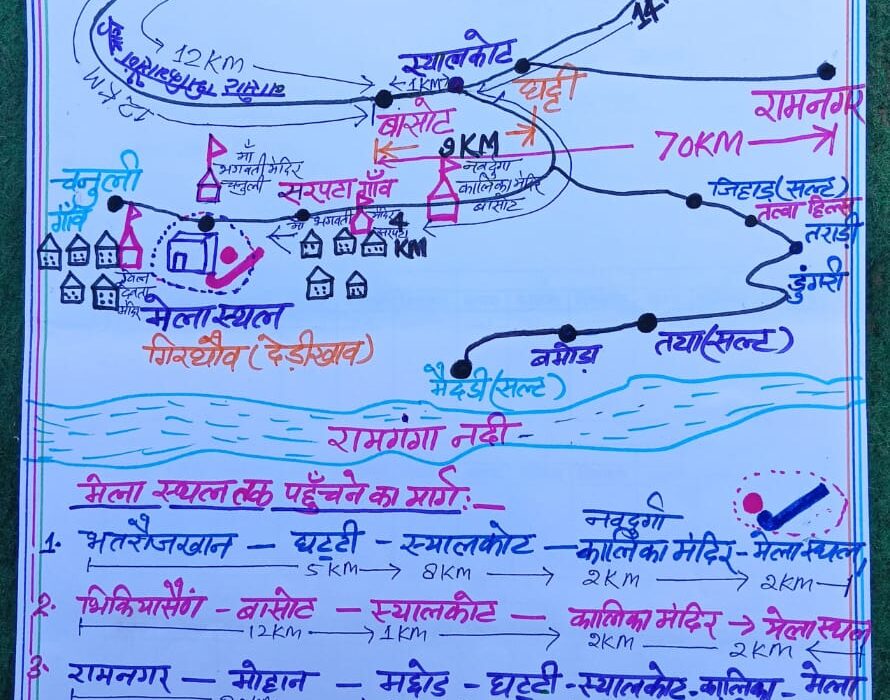 14
12KM
स्यालकोट
1KM
घट्टी
बासोट
रामनगर
9KM
70KM
माँ
भगवती मंदिर
चनुली
नवदुर्गा
कालिका मंदिर
बासोट
चनुली
गाँव
सरपटा गाँव
जिहाड़(सल्ट)
तल्वा हिल्स
तराड़ी
माँ भगवती मंदिर
सरपटा
4
KM
डुंगरी
मंदिर
मेला स्थल
गिरधौव (देड़ीखाव)
तया(सल्ट)
बमोड़ा
मैदडी(सल्ट)
रामगंगा नदी
मेला स्थल तक पहुँचने का मार्ग:-
नवदुर्गा
1. भतरौजखान — घट्टी - स्यालकोट — कालिका मंदिर - मेला स्थल
5KM 8KM 2KM 2KM
2. भिकियासैंण - बासोट — स्यालकोट — कालिका मंदिर → मेला स्थल
12KM 1KM 2KM 2KM
3. रामनगर — मोहान — मछोड - घट्टी - स्यालकोट - कालिका - मेला